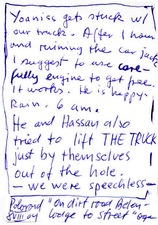 Yoaniss gets stuck w/
our truck. After 1 hour
and ruining the car jack
I suggest to use care-
fully engine to get free.
It works. He is happy.
Rain. 6 am.
He and Hassan also
tried to lift THE TRUCK
just by themselves
out of the hole.
— we were speechless —
Polaroid "On dirt road
XVIII 04 lodge to street"